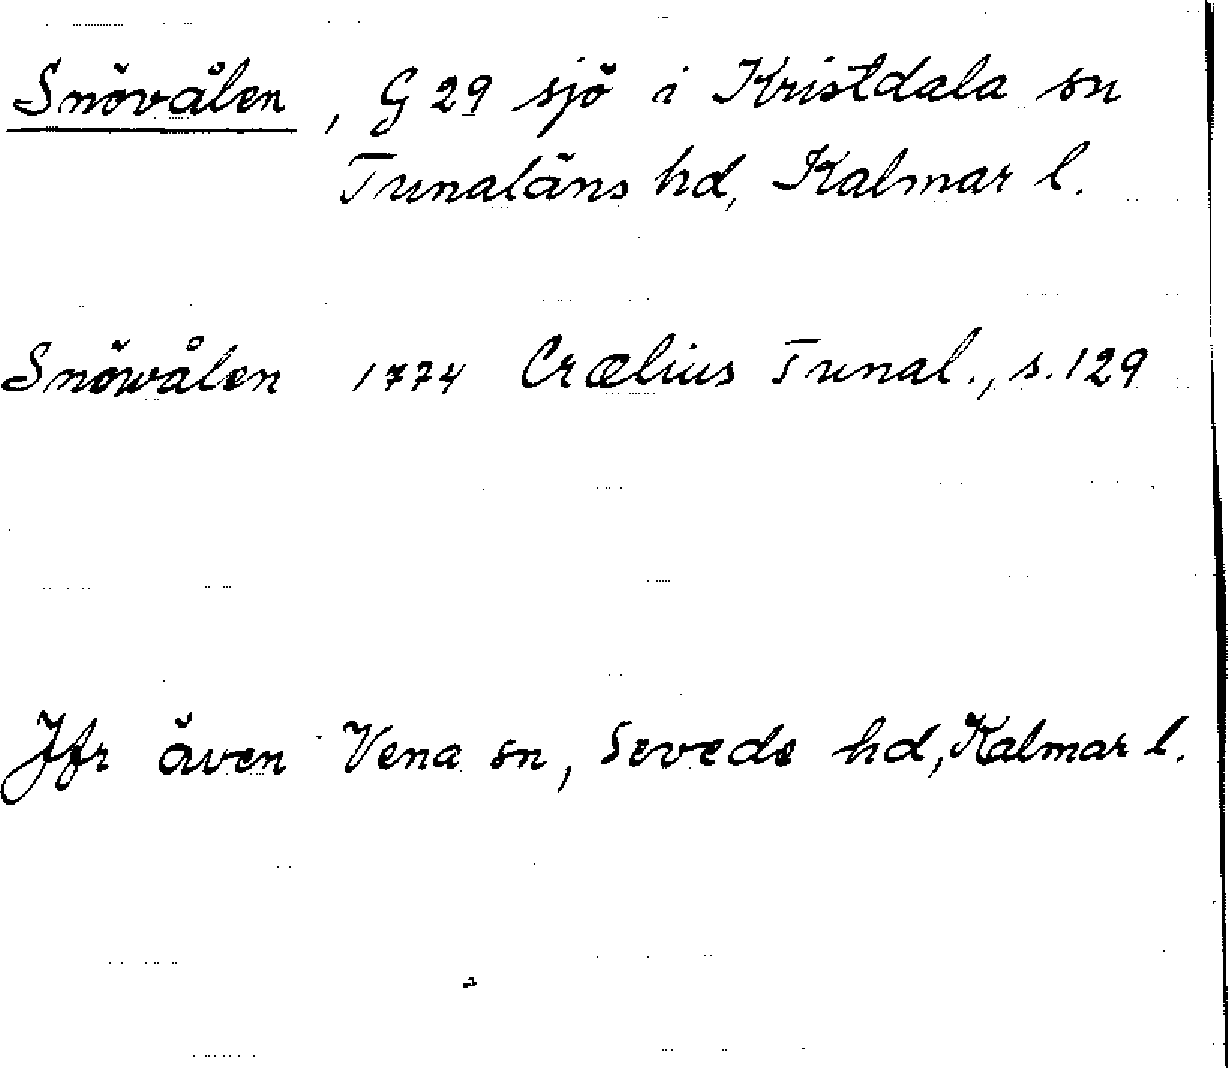 Snövålen, G 29 sjö i Kristdala sn
Tunaläns hd, Kalmar l.
Snöwålen 1774 Crælius Tunal., s. 129
Jfr även Vena sn, Sevede hd, Kalmar l.